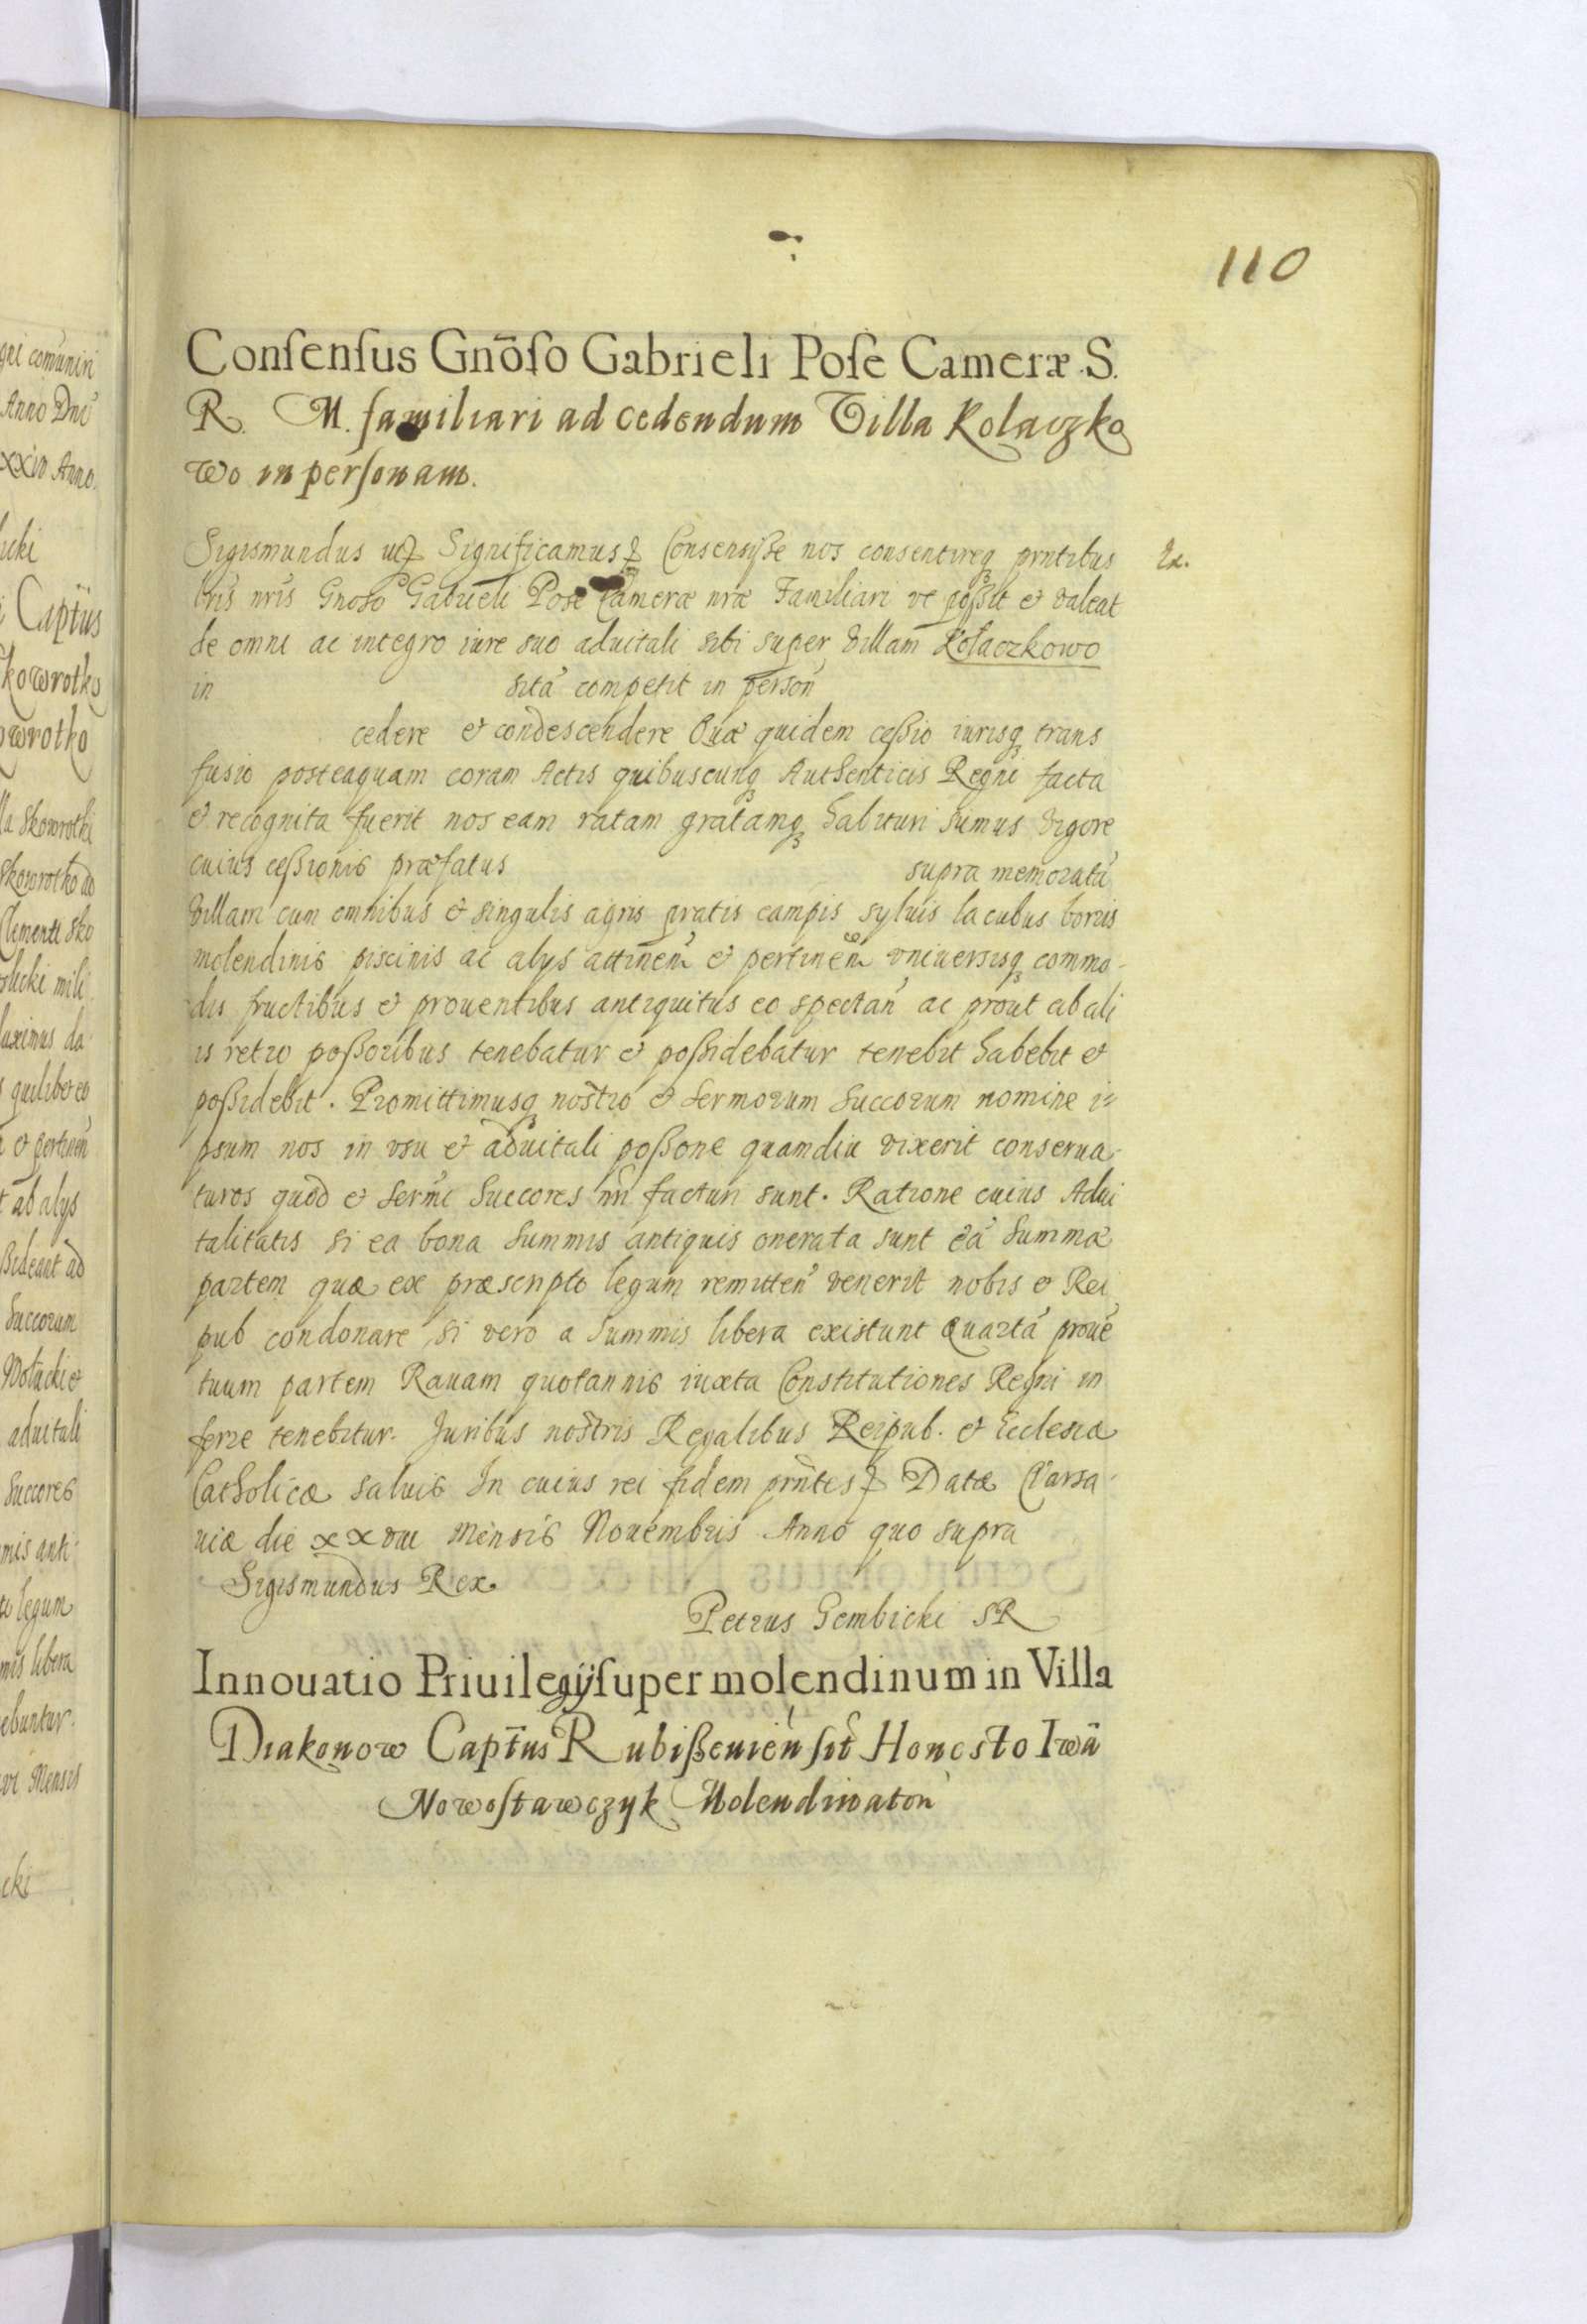 110
Conſenſus Gnõſo Gabrieli Poſe Cameræ .S.
R. M. familiari ad cedendum Villa Kolaczko
wo in perſonam.
Sigismundus etc Significamus etc Consensiße nos consentireq prntibus
lris nris Gnoso Gabrieli Pose Cameræ nræ Familiari vt poßit et valeat
de omni ac integro iure suo aduitali sibi super villam Kołaczkowo
in sita competit in person
cedere et condescendere Quæ quidem ceßio iurisq trans
fusio posteaquam coram Actis quibuscunq Authenticis Regni facta
et recognita fuerit nos eam ratam gratamq habituri sumus vigore
cuius ceßionis præfatus supra memorata
villam cum omnibus et singulis agris pratis campis syluis lacubus boris
molendinis piscinis ac alys attinen et pertinen vniuersisq commo-
dis fructibus et prouentibus antiquitus eo spectan ac prout ab ali
is retro poßoribus tenebatur et poßidebatur tenebit habebit et
poßidebit. Promittimusq nostro et sermorum Succorum nomine i=
psum nos in vsu et aduitali poßone quamdiu vixerit conserua-
turos quod et sermi Succores nri facturi sunt. Ratione cuius Adui
talitatis si ea bona summis antiquis onerata sunt ea summæ
partem quæ ex præscripto legum remitten venerit nobis et Rei
pub condonare si vero a summis libera existunt quarta proue
tuum partem Rauam quotannis iuxta Constitutiones Regni in
ferre tenebitur. Juribus nostris Regalibus Reipub. et Ecclesiæ
Catholicæ saluis In cuius rei fidem prntes etc Datæ Varsa-
uiæ die xxvii Mensis Nouembris Anno quo supra
Sigismundus Rex
Petrus Gembicki SR
Innouatio Priuilegij ſuper molendinum in Villa
Diakonow Captus Rubißeuien ſit Honesto Iwã
Nowoſtawczyk Molendinatori